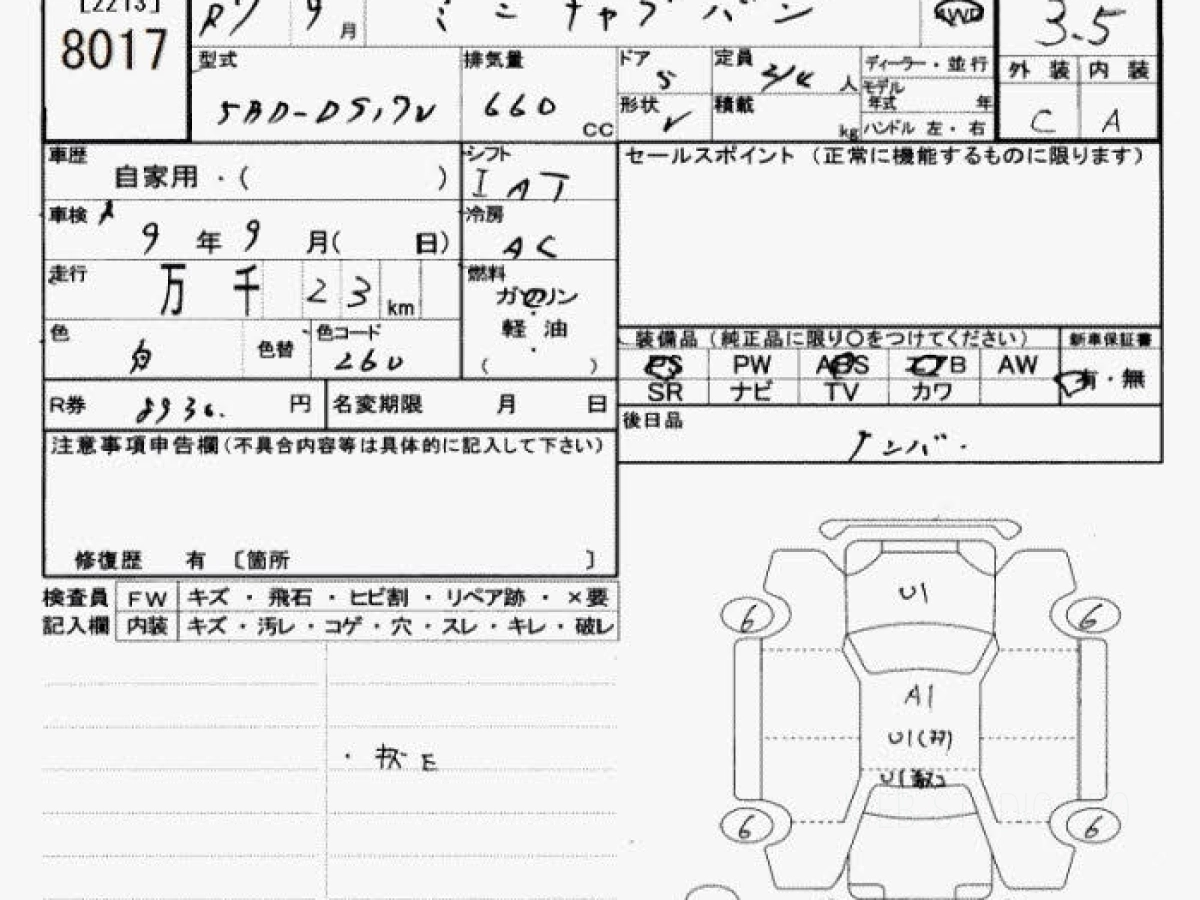 [2213]
8017
R7 9 月 ミニキャブバン 4WD 3.5
型式 排気量 ドア 定員 ディーラー・並行 外装 内装
5 2/4 人 モデル年式 年
5BD-DS17V 660 CC 形状 V 積載 kg ハンドル 左・右 C A
車歴 シフト セールスポイント (正常に機能するものに限ります)
自家用・( ) I AT
車検 R 9 年 9 月( 日) 冷房 AC
走行 万 千 23 km 燃料
ガソリン
軽 油
( )
色 白 色替 色コード 260
装備品(純正品に限り○をつけてください) 新車保証書
PS PW ABS エアB AW 有・無
SR ナビ TV カワ
R券 8930. 円 名変期限 月 日
後日品
ナンバー
注意事項申告欄(不具合内容等は具体的に記入して下さい)
修復歴 有 〔箇所 ]
検査員 FW キズ・飛石・ヒビ割・リペア跡・×要
記入欄 内装 キズ・汚レ・コゲ・穴・スレ・キレ・破レ
U1
6 6
A1
U1
U1
6 6